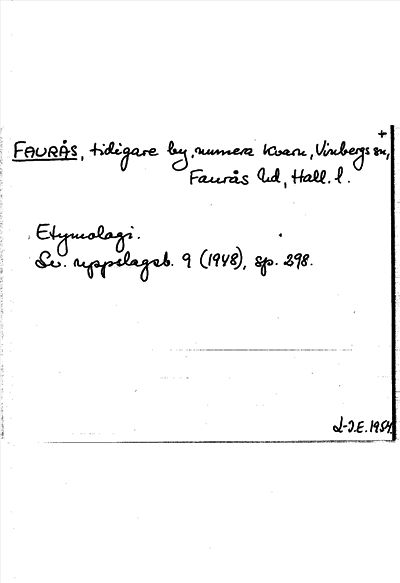 +
FAURÅS, tidigare by, numera kvarn, Vinbergs sn,
Faurås hd, Hall. l.
Etymologi.
Sv. uppslagsb. 9 (1948), sp. 298.
L-J.E. 1984